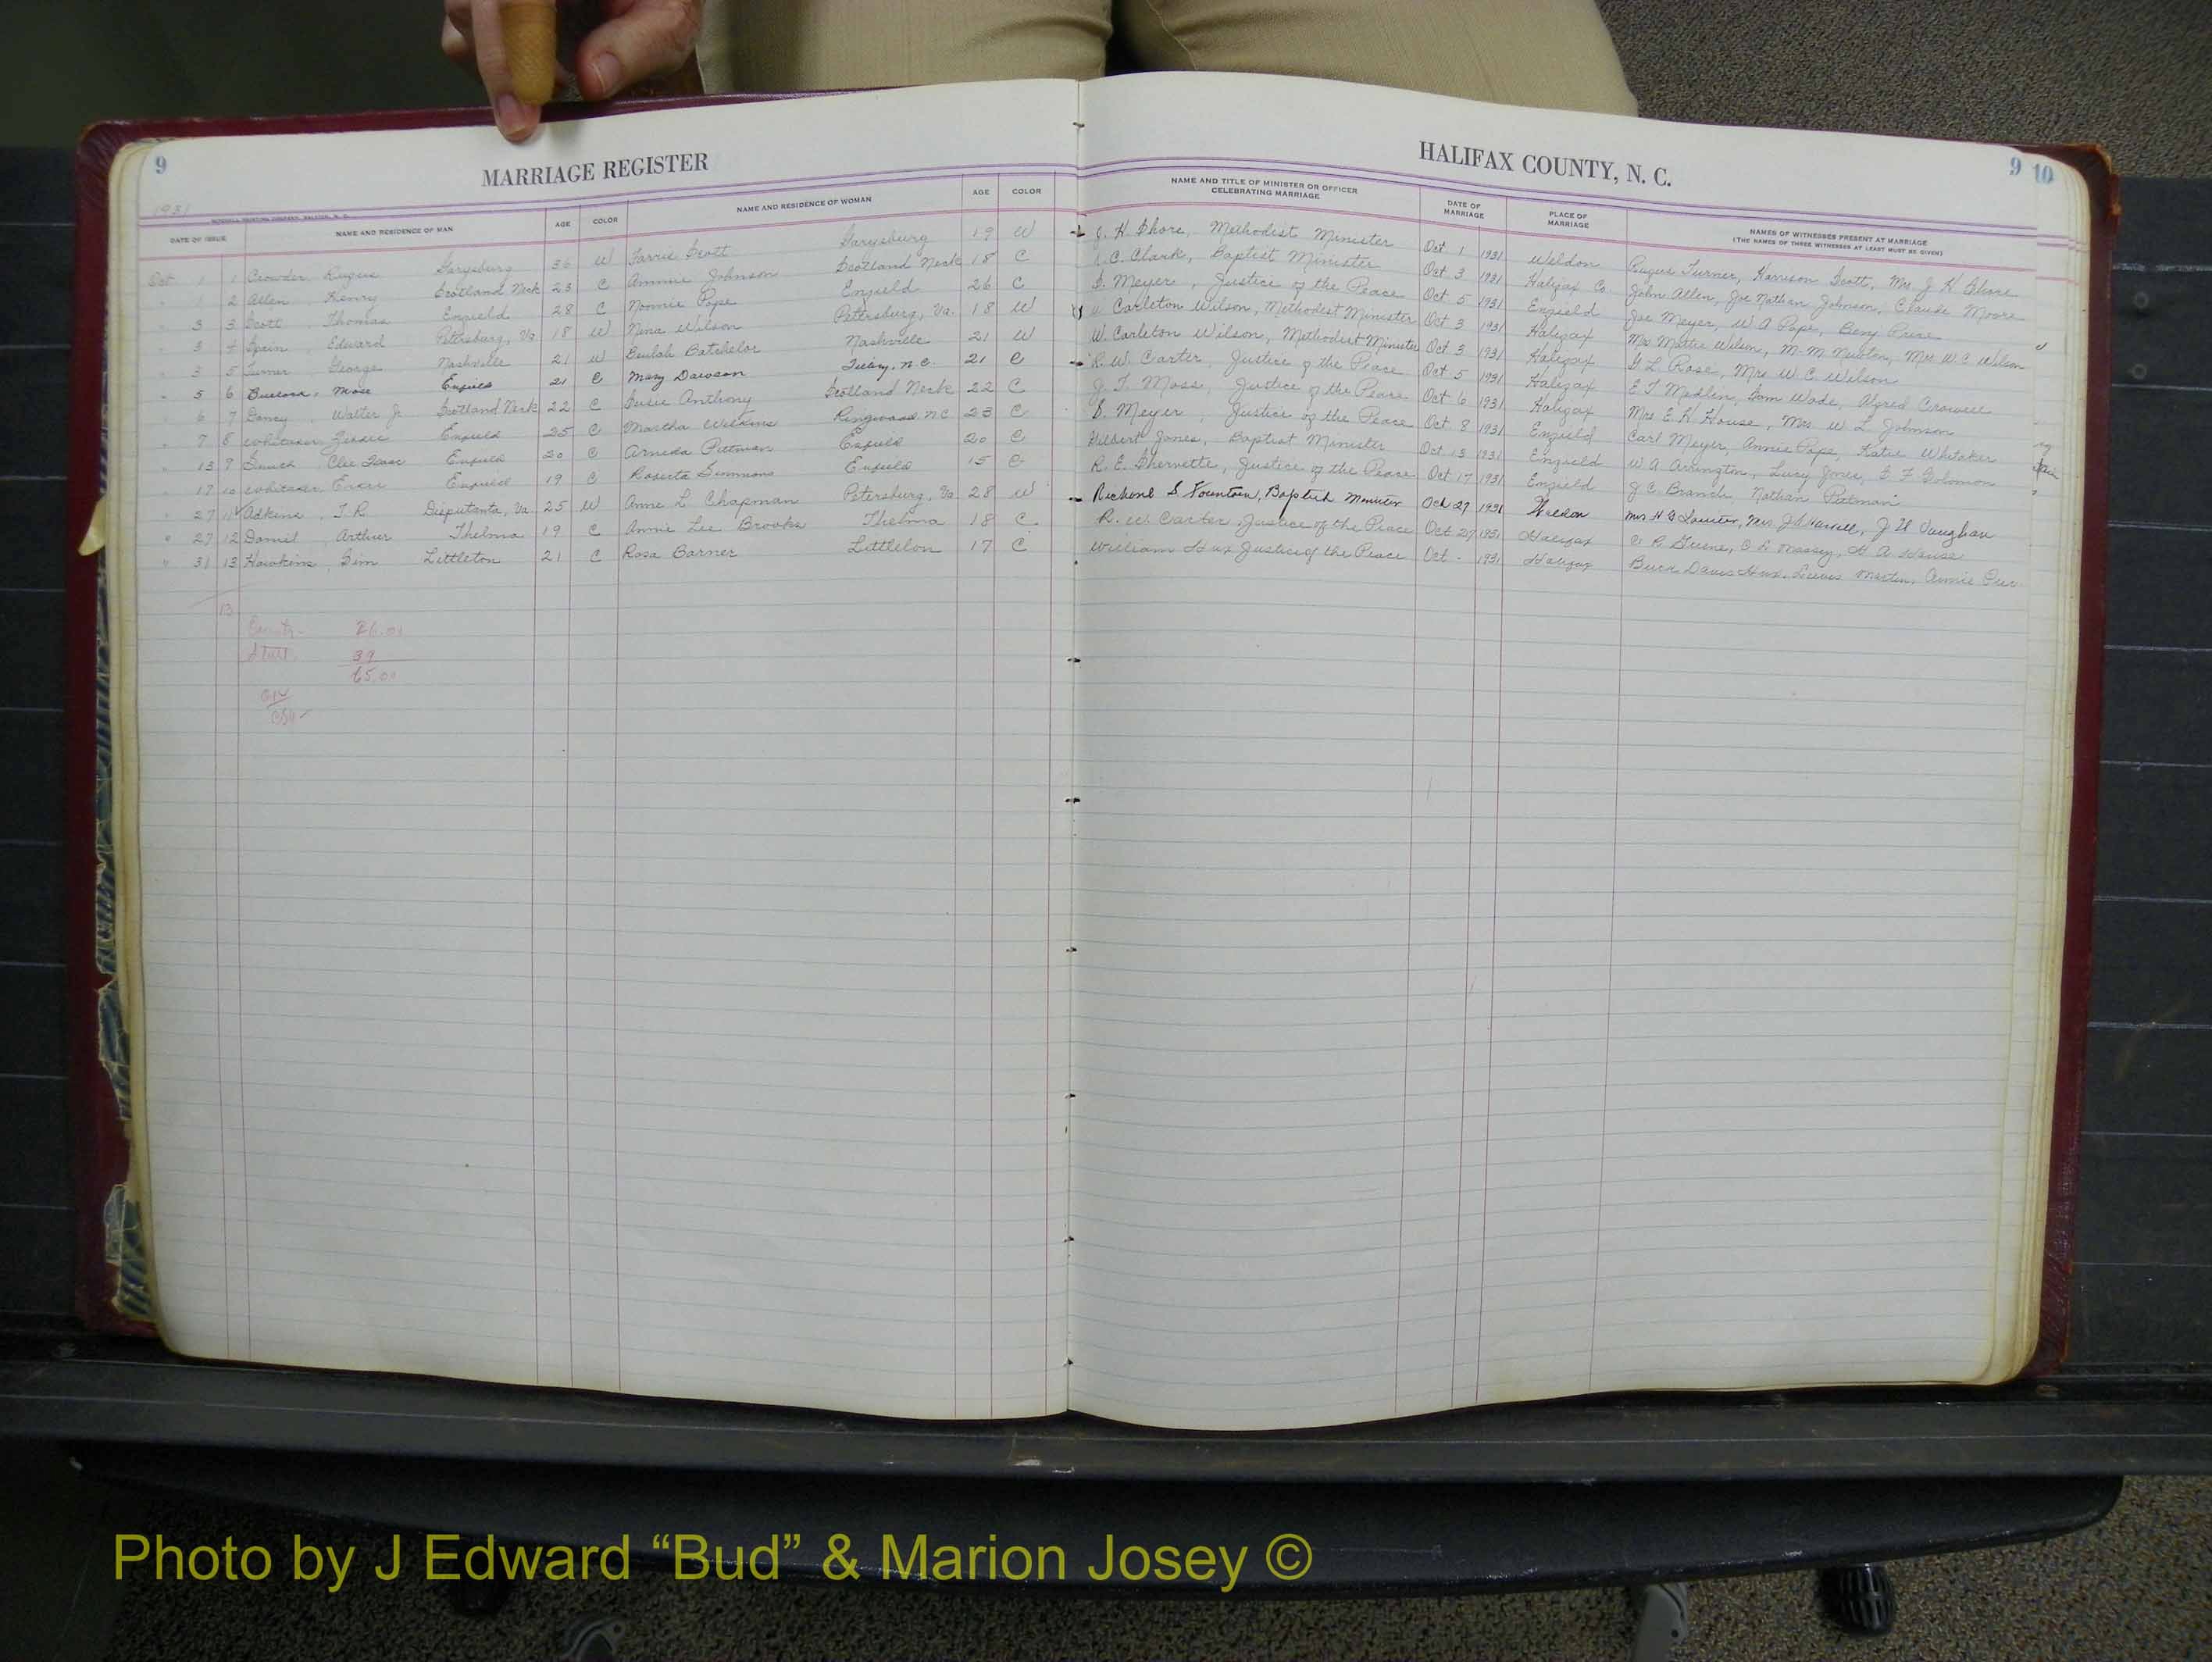 9
MARRIAGE REGISTER
1931
DATE OF ISSUE NAME AND RESIDENCE OF MAN AGE COLOR NAME AND RESIDENCE OF WOMAN AGE COLOR
Oct 1 1 Crowder, Rufus Garysburg 36 W Farrie Scott Garysburg 19 W
" 1 2 Allen, Henry Scotland Neck 23 C Ammie Johnson Scotland Neck 18 C
" 3 3 Scott Thomas Enfield 28 C Nonnie Pope Enfield 26 C
3 4 Spain, Edward Petersburg, Va 18 W Nina Wilson Petersburg, Va. 18 W
" 3 5 Turner George Nashville 21 W Beulah Batchelor Nashville 21 W
" 5 6 Mose Enfield 21 C Mary Dawson Tillery, N.C. 21 C
6 7 Walter Jr Scotland Neck 22 C Susie Anthony Scotland Neck 22 C
" 7 8 Whitaker, Enfield 25 C Martha Wilkins Ringwood NC 23 C
" 13 9 Isaac Enfield 20 C Arneda Pittman Enfield 20 C
" 17 10 Whitaker, Enfield 19 C Roberta Simmons Enfield 15 C
" 27 11 Adkins, T.R. Disputanta, Va. 25 W Anne L Chapman Petersburg, Va 28 W
" 27 12 Daniel Arthur Thelma 19 C Annie Lee Brooks Thelma 18 C
" 31 13 Hawkins, Sim Littleton 21 C Rosa Barner Littleton 17 C
13
26.00
39
65.00
HALIFAX COUNTY, N. C.
9 10
NAME AND TITLE OF MINISTER OR OFFICER CELEBRATING MARRIAGE DATE OF MARRIAGE PLACE OF MARRIAGE NAMES OF WITNESSES PRESENT AT MARRIAGE
(THE NAMES OF THREE WITNESSES AT LEAST MUST BE GIVEN)
J. H. Shore, Methodist Minister Oct 1 1931 Weldon Rufus Turner, Harrison Scott, Mrs. J H Shore
C. Clark, Baptist Minister Oct 3 1931 Halifax Co. John Allen, Joe Nathan Johnson, Claude Moore
S. Meyer, Justice of the Peace Oct 5 1931 Enfield Joe Meyer, W A Pope, Beny Price
W Carleton Wilson, Methodist Minister Oct 3 1931 Halifax Mrs Mattie Wilson, M. M. Newton, Mrs W C Wilson
W. Carleton Wilson, Methodist Minister Oct 3 1931 Halifax G L. Rose, Mrs W. C. Wilson
R. W. Carter, Justice of the Peace Oct 5 1931 Halifax E T Medlin, Sam Wade, Alfred Crowell
J. T. Moss, Justice of the Peace Oct 6 1931 Halifax Mrs E. K. House, Mrs. W L Johnson
S. Meyer, Justice of the Peace Oct 8 1931 Enfield Carl Meyer, Annie Pope, Katie Whitaker
Gilbert Jones, Baptist Minister Oct 13 1931 Enfield W A. Arrington, Lucy Jones, E F Solomon
R. E. Shervette, Justice of the Peace Oct 17 1931 Enfield J C. Branch, Nathan Pittman
Richard S Fountain, Baptist Minister Oct 27 1931 Weldon Mrs J A Harrell, J W Vaughan
R. W. Carter, Justice of the Peace Oct 27 1931 Halifax
William Hux Justice of the Peace Oct - 1931 Halifax Buck Davis Hux, Lewis Martin, Annie
Photo by J Edward “Bud” & Marion Josey ©